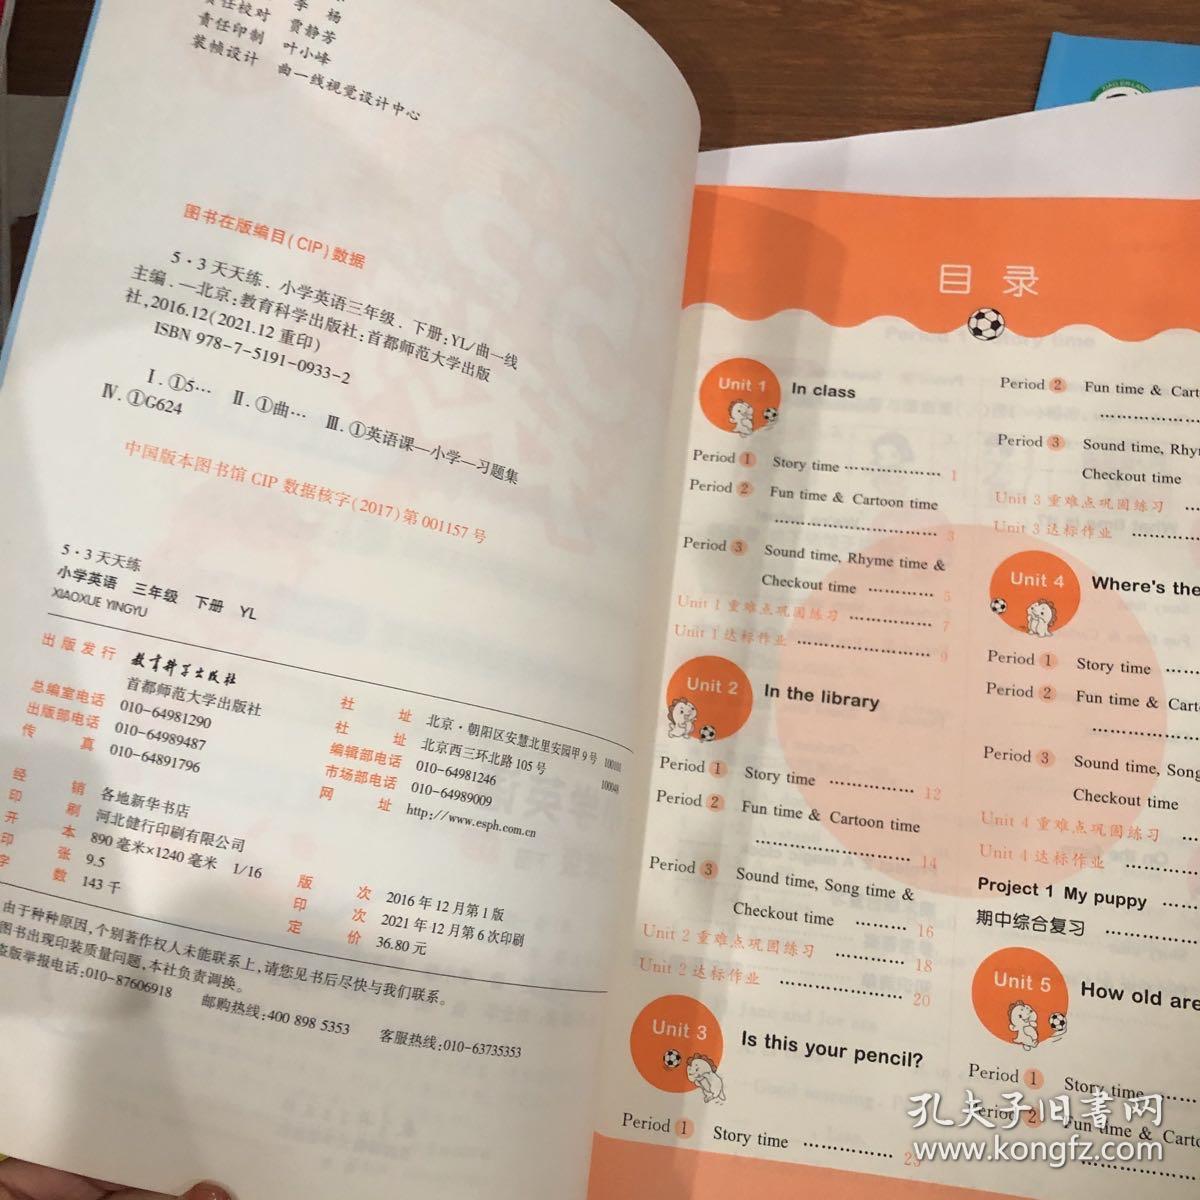 李 杨
责任校对 贾静芳
责任印制 叶小峰
装帧设计 曲一线视觉设计中心
图书在版编目(CIP)数据
5·3天天练．小学英语三年级．下册：YL/曲一线
主编．—北京：教育科学出版社：首都师范大学出版
社，2016.12(2021.12重印)
ISBN 978-7-5191-0933-2
Ⅰ.①5… Ⅱ.①曲… Ⅲ.①英语课—小学—习题集
Ⅳ.①G624
中国版本图书馆CIP数据核字(2017)第001157号
5·3天天练
小学英语 三年级 下册 YL
XIAOXUE YINGYU
出版发行 教育科学出版社
首都师范大学出版社
总编室电话 010-64981290
出版部电话 010-64989487
传 真 010-64891796
社 址 北京·朝阳区安慧北里安园甲9号 100101
社 址 北京西三环北路105号 100048
编辑部电话 010-64981246
市场部电话 010-64989009
网 址 http://www.esph.com.cn
经 销 各地新华书店
印 刷 河北健行印刷有限公司
开 本 890毫米×1240毫米 1/16
印 张 9.5
字 数 143千
版 次 2016年12月第1版
印 次 2021年12月第6次印刷
定 价 36.80元
由于种种原因，个别著作权人未能联系上，请您见书后尽快与我们联系。
图书出现印装质量问题，本社负责调换。
盗版举报电话：010-87606918 邮购热线：400 898 5353 客服热线：010-63735353
目录
Unit 1 In class
Period 1 Story time ……………… 1
Period 2 Fun time & Cartoon time
……………………… 3
Period 3 Sound time, Rhyme time &
Checkout time ………… 5
Unit 1 重难点巩固练习 ………… 7
Unit 1 达标作业 ………………… 9
Unit 2 In the library
Period 1 Story time ………… 12
Period 2 Fun time & Cartoon time
……………………… 14
Period 3 Sound time, Song time &
Checkout time ………… 16
Unit 2 重难点巩固练习 ………… 18
Unit 2 达标作业 ………………… 20
Unit 3 Is this your pencil?
Period 1 Story time …………… 23
Period 2 Fun time & Cart
………………
Period 3 Sound time, Rhy
Checkout time
Unit 3 重难点巩固练习 ……
Unit 3 达标作业 …………
Unit 4 Where's the
Period 1 Story time ……
Period 2 Fun time & Cart
………………
Period 3 Sound time, Song
Checkout time
Unit 4 重难点巩固练习 ……
Unit 4 达标作业 …………
Project 1 My puppy ……
期中综合复习 ……………
Unit 5 How old are
Period 1 Story time ……
Period 2 Fun time & Carto
………………
孔夫子旧书网
www.kongfz.com